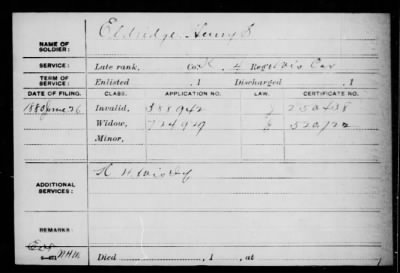 Eldridge, Henry S.
NAME OF
SOLDIER:
SERVICE:
Late rank, Co. K, 4 Reg't Wis Cav
TERM OF
SERVICE:
Enlisted , 1 Discharged , 1
DATE OF FILING. CLASS. APPLICATION NO. LAW. CERTIFICATE NO.
1880 June 26 Invalid, 388942
Widow,
Minor,
ADDITIONAL
SERVICES:
K 4 Wis Inf
REMARKS:
Died , 1 , at